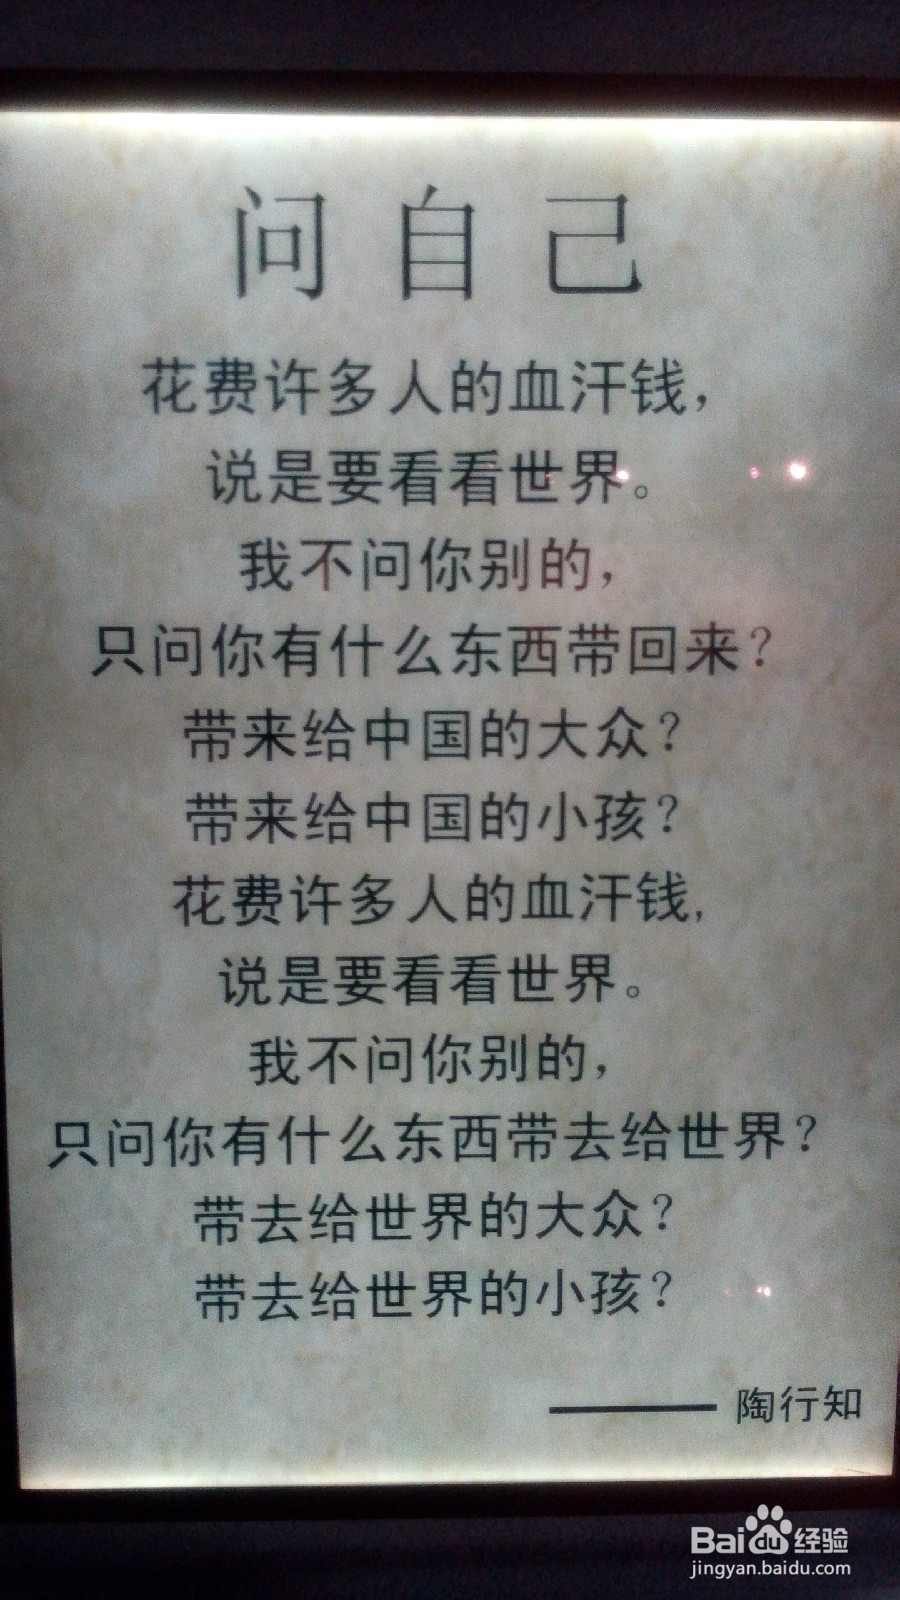 问自己
花费许多人的血汗钱，
说是要看看世界。
我不问你别的，
只问你有什么东西带回来？
带来给中国的大众？
带来给中国的小孩？
花费许多人的血汗钱，
说是要看看世界。
我不问你别的，
只问你有什么东西带去给世界？
带去给世界的大众？
带去给世界的小孩？
——陶行知
Bai du 经验
jingyan.baidu.com